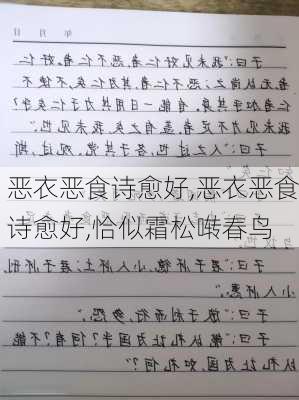 年 月 日
子曰:"我未见好仁者,恶不仁者。好仁
者,无以尚之;恶不仁者,其为仁矣,不使不
仁者加乎其身。有能一日用其力于仁矣乎?
我未见力不足者。盖有之矣,我未之见也。"
子曰:"人之过也,各于其党。观过,斯
恶衣恶食诗愈好,恶衣恶食
诗愈好,恰似霜松啭春鸟
子曰:"君子怀德,小人怀土;君子怀刑
小人怀惠。"
子曰:"放于利而行,多怨。"
子曰:"能以礼让为国乎?何有?不能
以礼让为国,如礼何?"